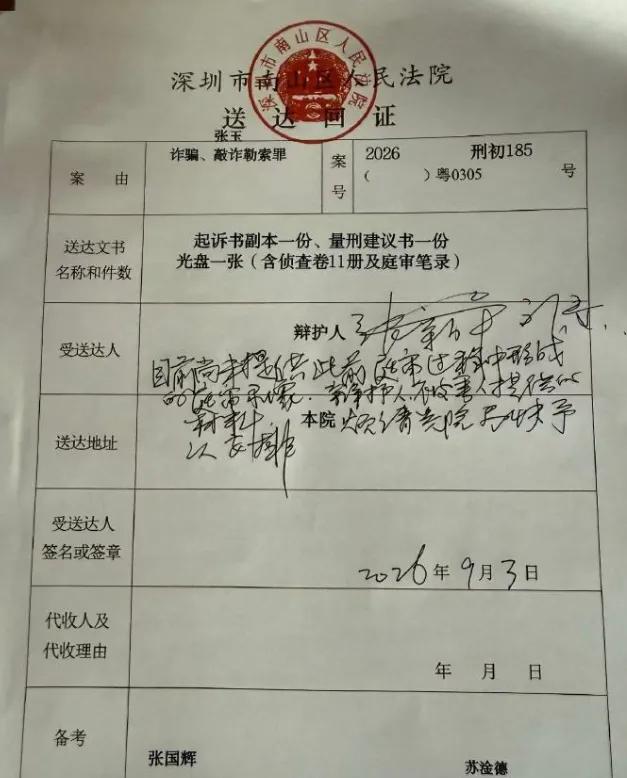 深圳市南山区人民法院
深圳市南山区人民法院
送达回证
张玉
案由
诈骗、敲诈勒索罪
案号
2026 刑初185
( )粤0305 号
送达文书
名称和件数
起诉书副本一份、量刑建议书一份
光盘一张(含侦查卷11册及庭审笔录)
受送达人
辩护人
目前尚未提供此前庭审过程中形成
的庭审录像、辩护人、被害人提给的
材料
送达地址
本院 烦请贵院尽快予
以安排
受送达人
签名或签章
2026年9月3日
代收人及
代收理由
年 月 日
备考
张国辉
苏淦德